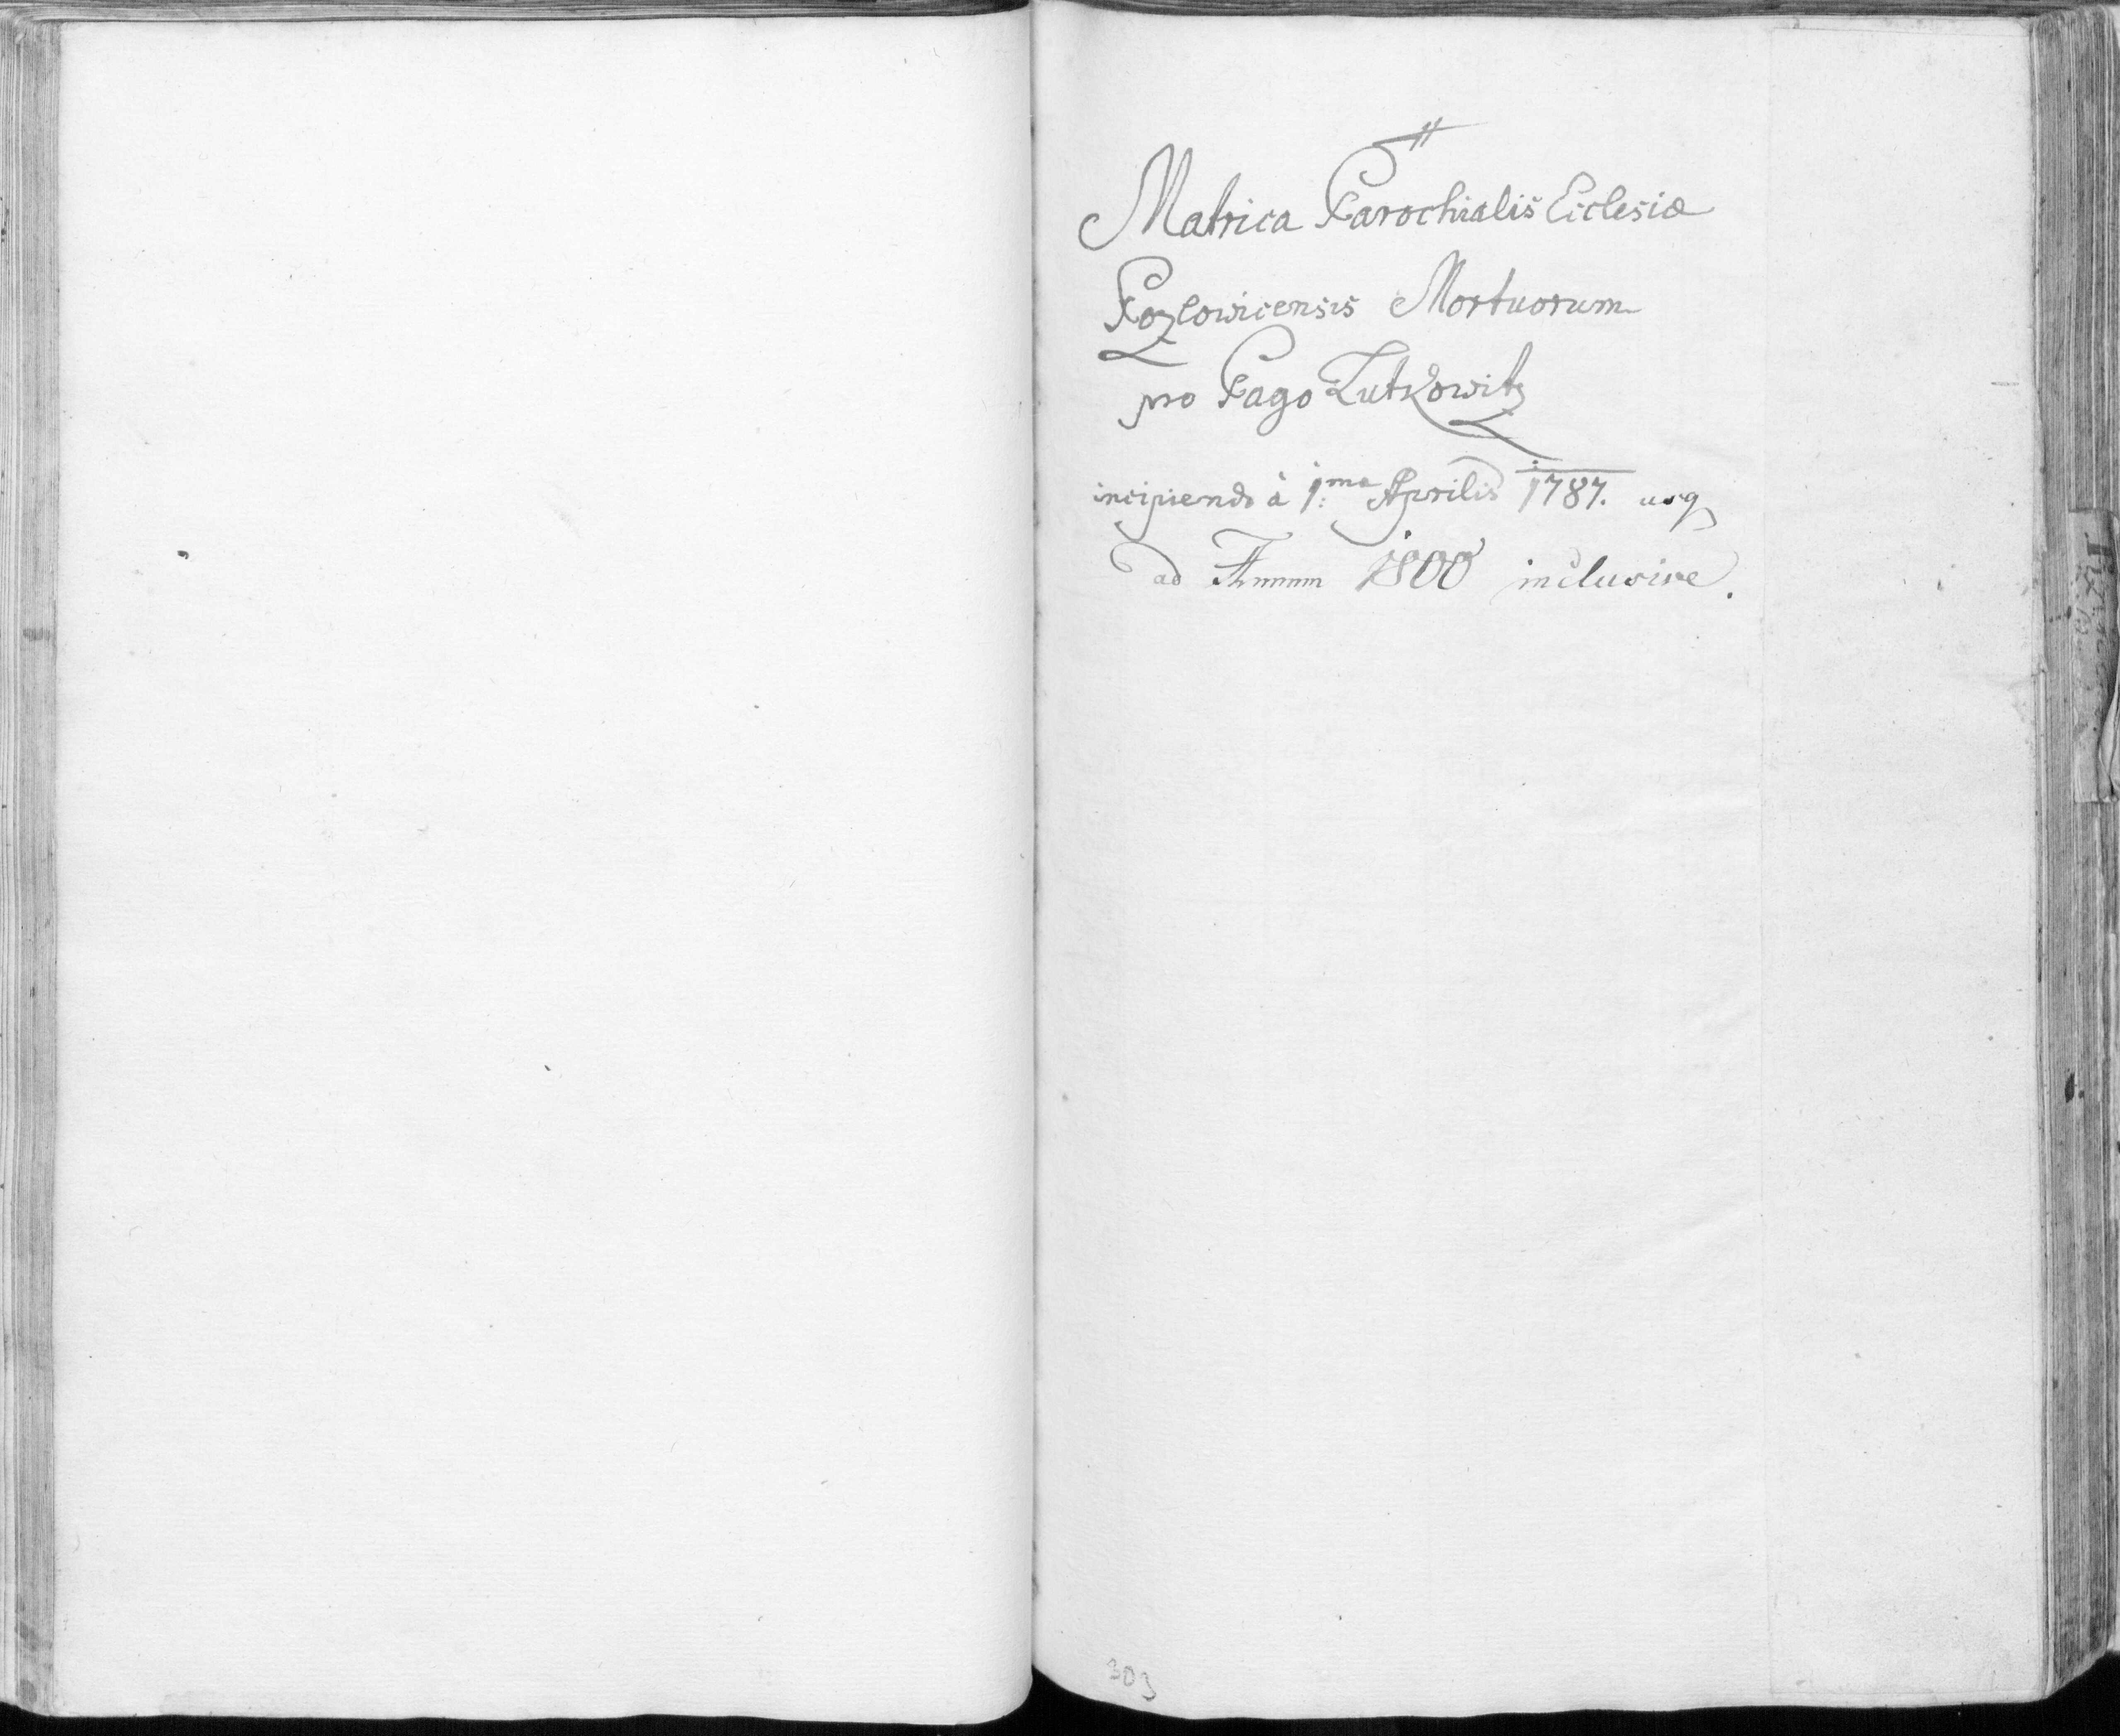 Matrica Parochialis Ecclesiæ
Pozlowicensis Mortuorum
pro Pago Lutkowitz
incipiendo à 1:ma Aprilis 1787. usq
ad Annum 1800 inclusive.
303